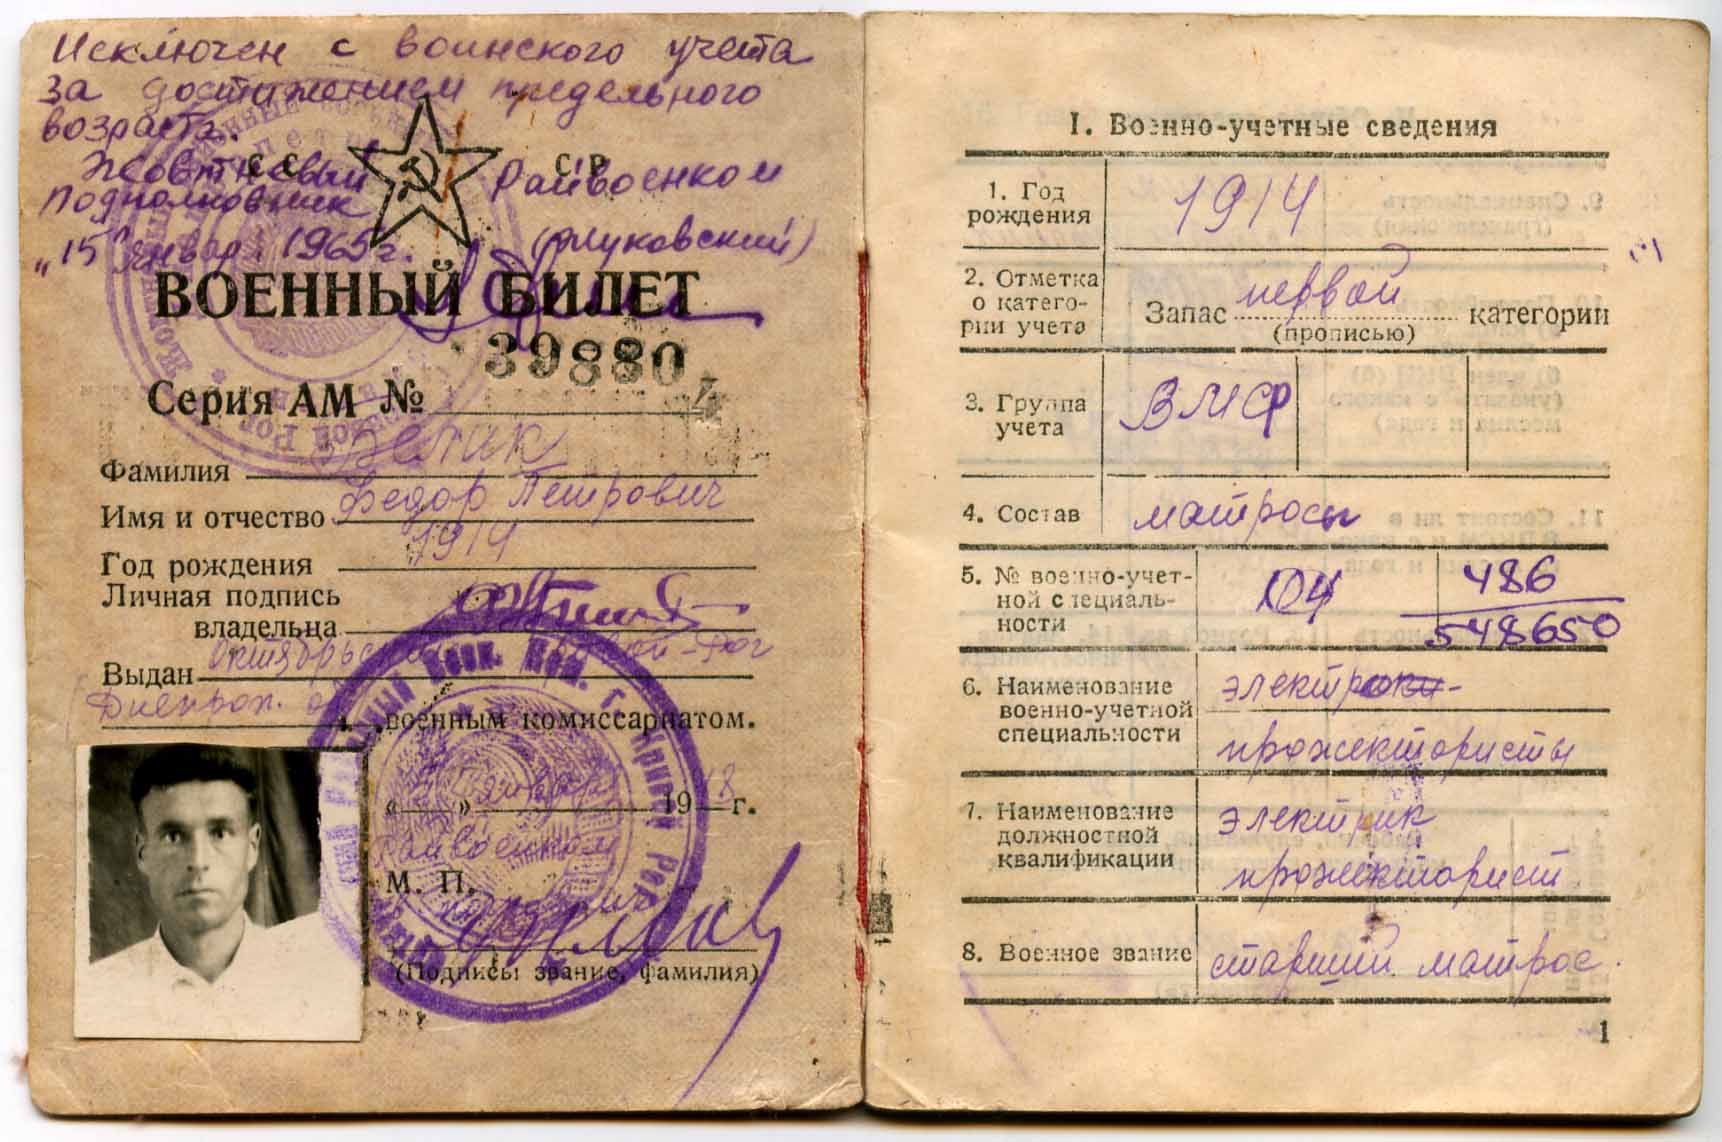 Исключен с воинского учета
за достижением предельного
возраста.
СС СР
Жовтневый Райвоенком
Подполковник
"15" январ. 1965г. (Жуковский)
ВОЕННЫЙ БИЛЕТ
Серия АМ № 398804
Фамилия
Имя и отчество Федор Петрович
Год рождения 1914
Личная подпись
владельца
Выдан Октябрьским Кривой-Рог
Днепроп. о
военным комиссариатом.
« » январ 19 8 г.
Райвоенком
М. П.
(Подпись, звание, фамилия)
I. Военно-учетные сведения
1. Год
рождения
1914
2. Отметка
о катего-
рии учета
Запас первой категории
(прописью)
3. Группа
учета
ВМФ
4. Состав
матросы
5. № военно-учет-
ной специаль-
ности
104
486
548650
6. Наименование
военно-учетной
специальности
электрики-
прожектористы
7. Наименование
должностной
квалификации
электрик
прожекторист
8. Военное звание
старший матрос.
1